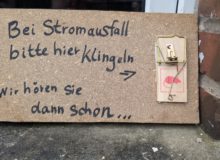 Bei Stromausfall
bitte hier Klingeln
Wir hören sie
dann schon...